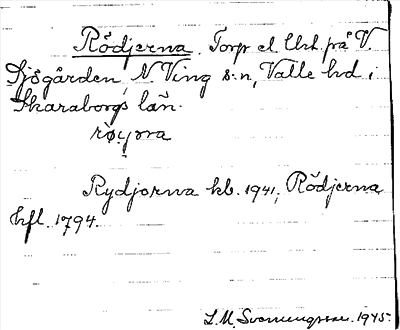 Rödjerna. Torp el. Urt. på V.
Sjögården N. Ving s:n, Valle hd i
Skaraborgs län.
røyna
Rydjorna kb. 1941, Rödjerna
hfl. 1794.
L. M. Svanungsson. 1945.